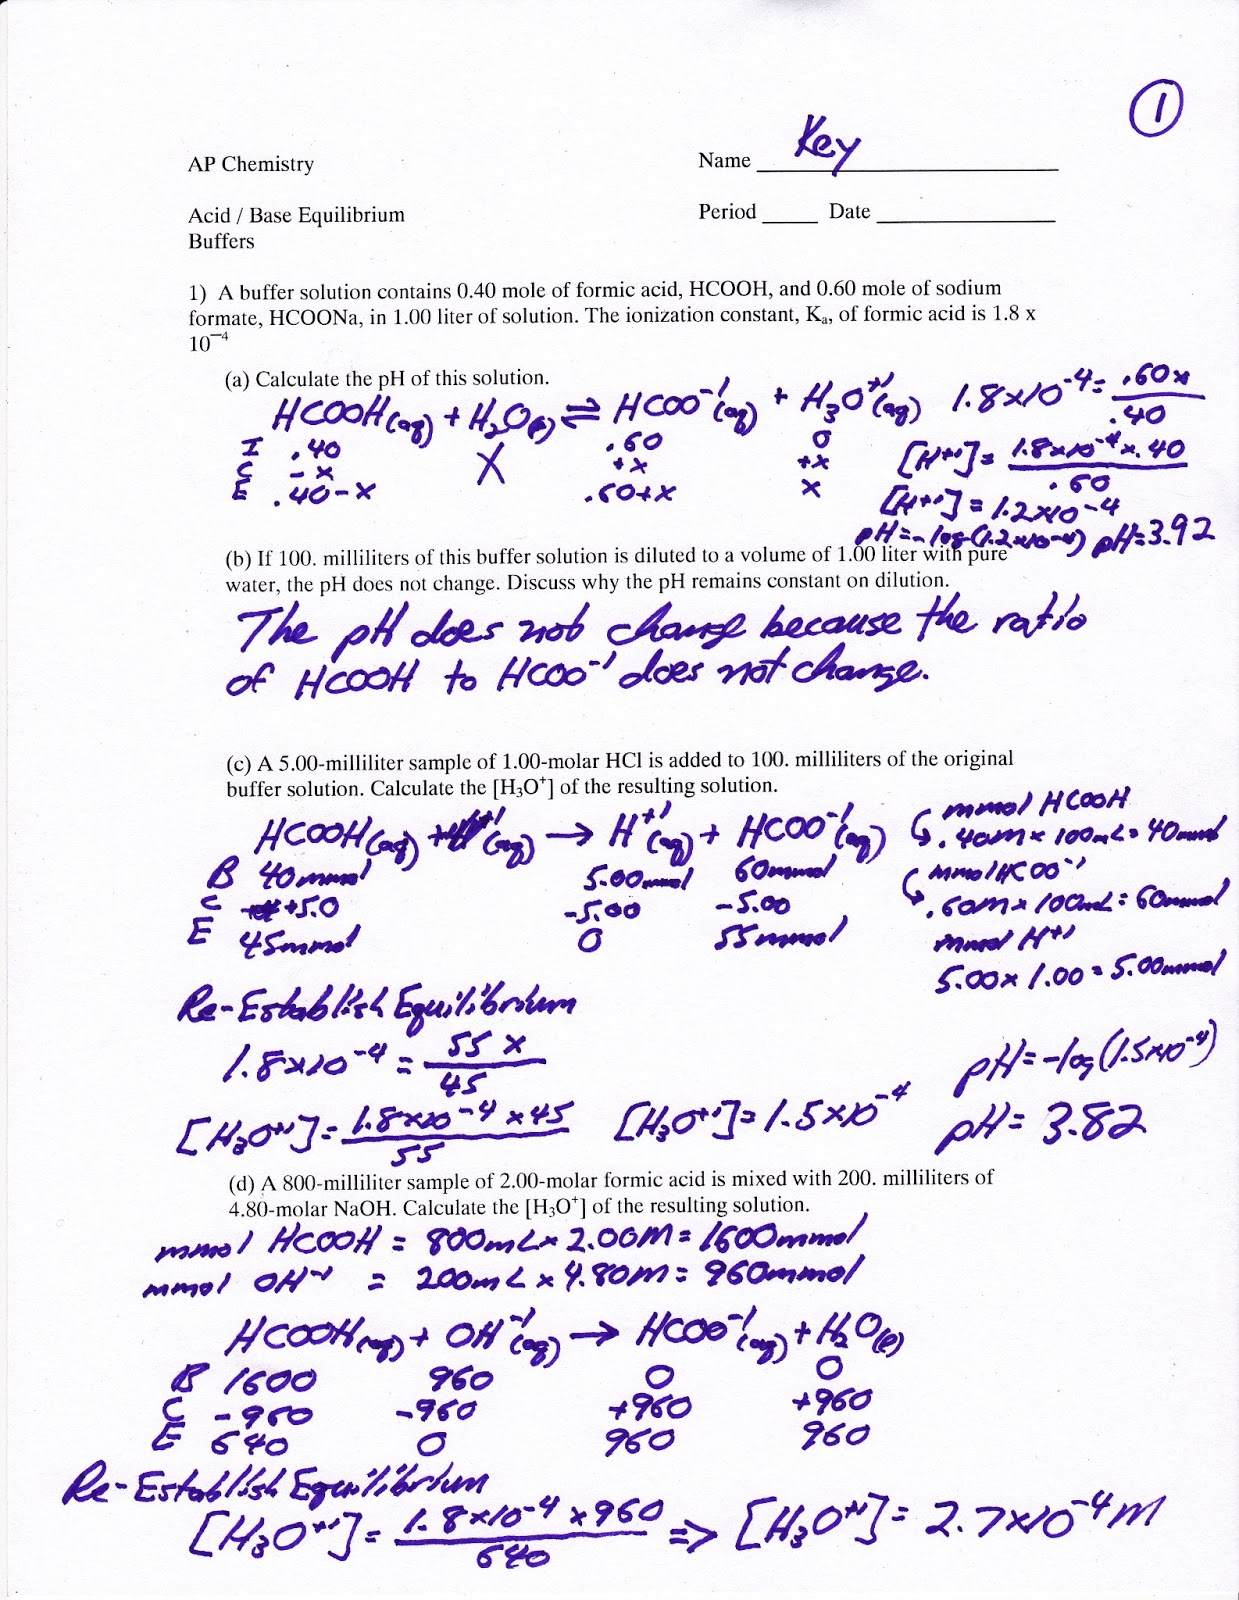 1
AP Chemistry
Name Key
Acid / Base Equilibrium
Period _____ Date _____
Buffers
1) A buffer solution contains 0.40 mole of formic acid, HCOOH, and 0.60 mole of sodium
formate, HCOONa, in 1.00 liter of solution. The ionization constant, Kₐ, of formic acid is 1.8 x
10⁻⁴
(a) Calculate the pH of this solution.
HCOOH(aq) + H₂O(l) ⇌ HCOO⁻¹(aq) + H₃O⁺¹(aq) 1.8x10⁻⁴ = .60x/.40
I .40 .60 0
C -x X +x +x [H⁺¹] = 1.8x10⁻⁴ x .40/.60
E .40-x .60+x x [H⁺¹] = 1.2x10⁻⁴
pH = -log(1.2x10⁻⁴) pH = 3.92
(b) If 100. milliliters of this buffer solution is diluted to a volume of 1.00 liter with pure
water, the pH does not change. Discuss why the pH remains constant on dilution.
The pH does not change because the ratio
of HCOOH to HCOO⁻¹ does not change.
(c) A 5.00-milliliter sample of 1.00-molar HCl is added to 100. milliliters of the original
buffer solution. Calculate the [H₃O⁺] of the resulting solution.
mmol HCOOH
HCOOH(aq) → H⁺¹(aq) + HCOO⁻¹(aq) .40M x 100mL = 40mmol
B 40mmol 5.00mmol 60mmol mmol HCOO⁻¹
C +5.0 -5.00 -5.00 .60M x 100mL = 60mmol
E 45mmol 0 55mmol mmol H⁺¹
5.00 x 1.00 = 5.00mmol
Re-Establish Equilibrium
1.8x10⁻⁴ = 55 x/45 pH = -log(1.5x10⁻⁴)
[H₃O⁺¹] = 1.8x10⁻⁴ x 45/55 [H₃O⁺¹] = 1.5x10⁻⁴ pH = 3.82
(d) A 800-milliliter sample of 2.00-molar formic acid is mixed with 200. milliliters of
4.80-molar NaOH. Calculate the [H₃O⁺] of the resulting solution.
mmol HCOOH = 800mL x 2.00M = 1600mmol
mmol OH⁻¹ = 200mL x 4.80M = 960mmol
HCOOH(aq) + OH⁻¹(aq) → HCOO⁻¹(aq) + H₂O(l)
B 1600 960 0 0
C -960 -960 +960 +960
E 640 0 960 960
Re-Establish Equilibrium
[H₃O⁺¹] = 1.8x10⁻⁴ x 960/640 ⇒ [H₃O⁺¹] = 2.7x10⁻⁴M